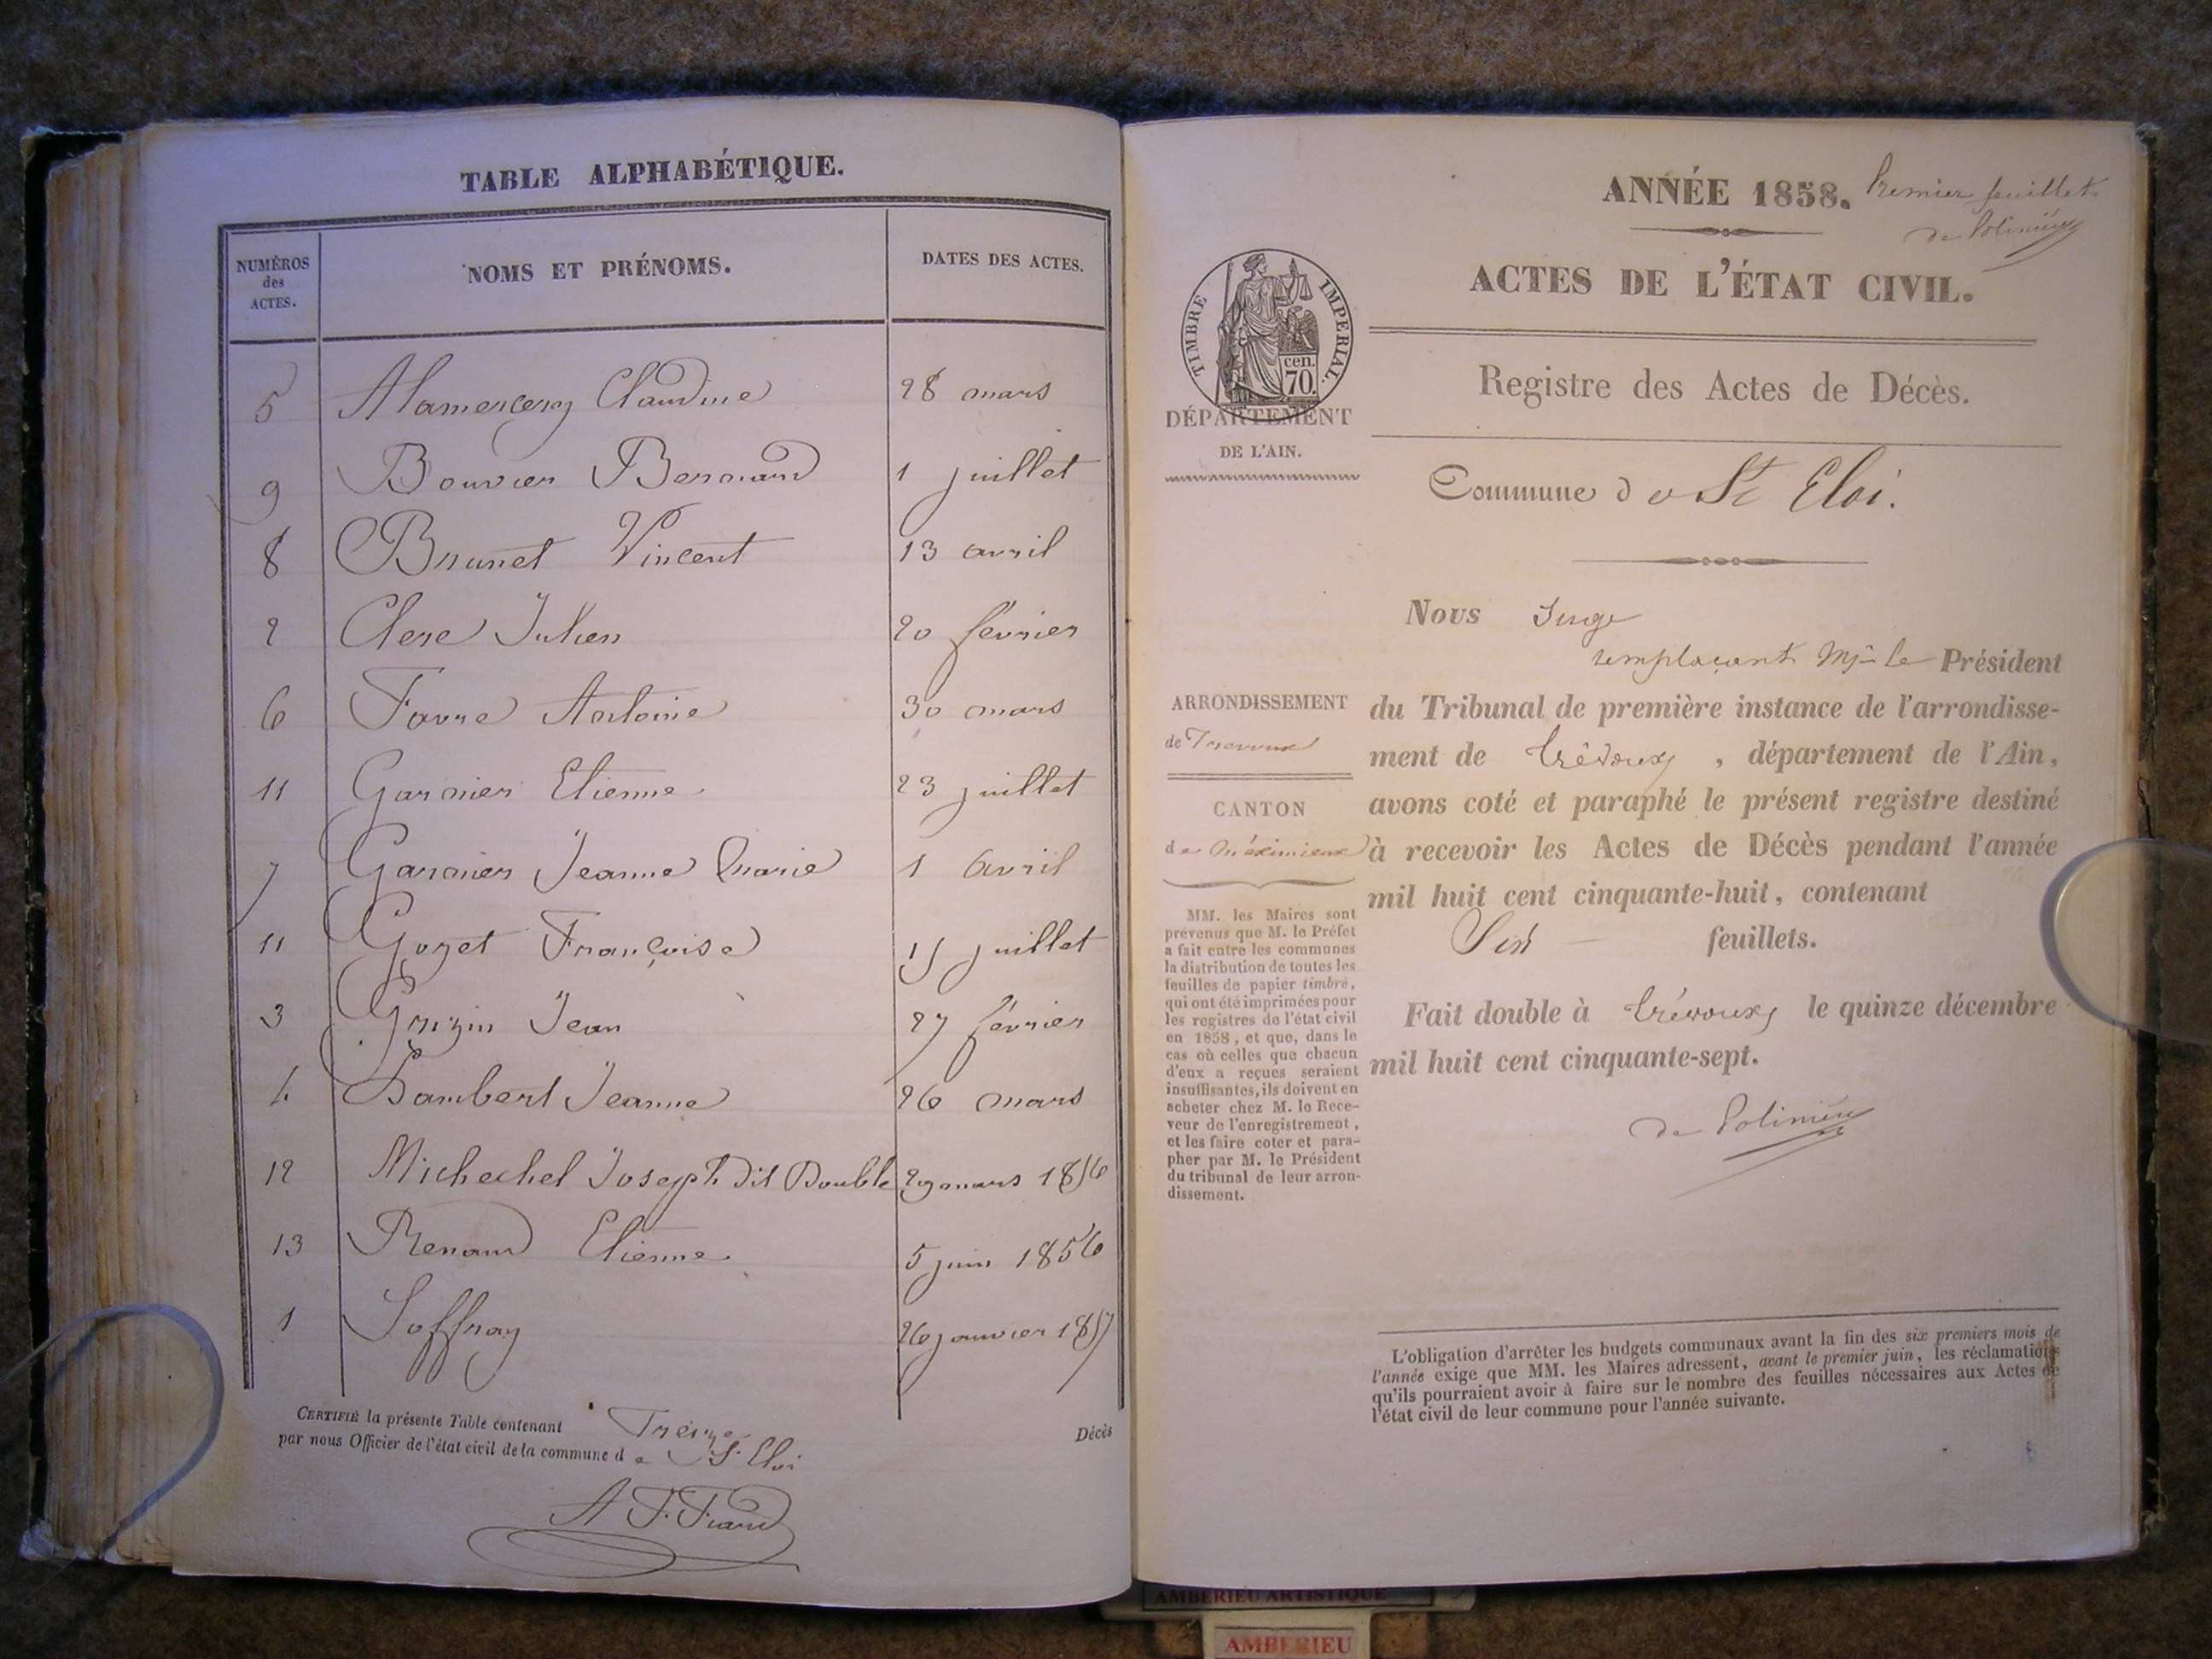 TABLE ALPHABÉTIQUE.
NUMÉROS des ACTES.
NOMS ET PRÉNOMS.
DATES DES ACTES.
5 Alamercery Claudine 28 mars
9 Bouvier Bernard 1 juillet
8 Brunet Vincent 13 avril
2 Clerc Julien 20 février
6 Favre Antoine 30 mars
11 Garnier Etienne 23 juillet
7 Garnier Jeanne Marie 1 Avril
11 Goyet Françoise 15 juillet
3 Grizin Jean 27 février
4 Lambert Jeanne 26 mars
12 Michechel Joseph dit Double 29 mars 1856
13 Renaud Etienne 5 juin 1856
1 Soffray 26 janvier 1857
CERTIFIÉ la présente Table contenant Treize Décès
par nous Officier de l'état civil de la commune de St. Eloi
A F. Fiard
ANNÉE 1858. Premier feuillet.
de Polinière
ACTES DE L'ÉTAT CIVIL.
TIMBRE IMPERIAL.
cen.
70.
DÉPARTEMENT
DE L'AIN.
Registre des Actes de Décès.
Commune de St Eloi.
Nous Juge
remplaçant Mr le Président
du Tribunal de première instance de l'arrondisse-
ment de Trévoux, département de l'Ain,
avons coté et paraphé le présent registre destiné
à recevoir les Actes de Décès pendant l'année
mil huit cent cinquante-huit, contenant
Six feuillets.
Fait double à Trévoux, le quinze décembre
mil huit cent cinquante-sept.
de Polinière
ARRONDISSEMENT
de Trevoux
CANTON
de Méximieux
MM. les Maires sont
prévenus que M. le Préfet
a fait entre les communes
la distribution de toutes les
feuilles de papier timbré,
qui ont été imprimées pour
les registres de l'état civil
en 1858, et que, dans le
cas où celles que chacun
d'eux a reçues seraient
insuffisantes, ils doivent en
acheter chez M. le Rece-
veur de l'enregistrement,
et les faire coter et para-
pher par M. le Président
du tribunal de leur arron-
dissement.
L'obligation d'arrêter les budgets communaux avant la fin des six premiers mois de
l'année exige que MM. les Maires adressent, avant le premier juin, les réclamations
qu'ils pourraient avoir à faire sur le nombre des feuilles nécessaires aux Actes de
l'état civil de leur commune pour l'année suivante.
AMBERIEU ARTISTIQUE
AMBERIEU